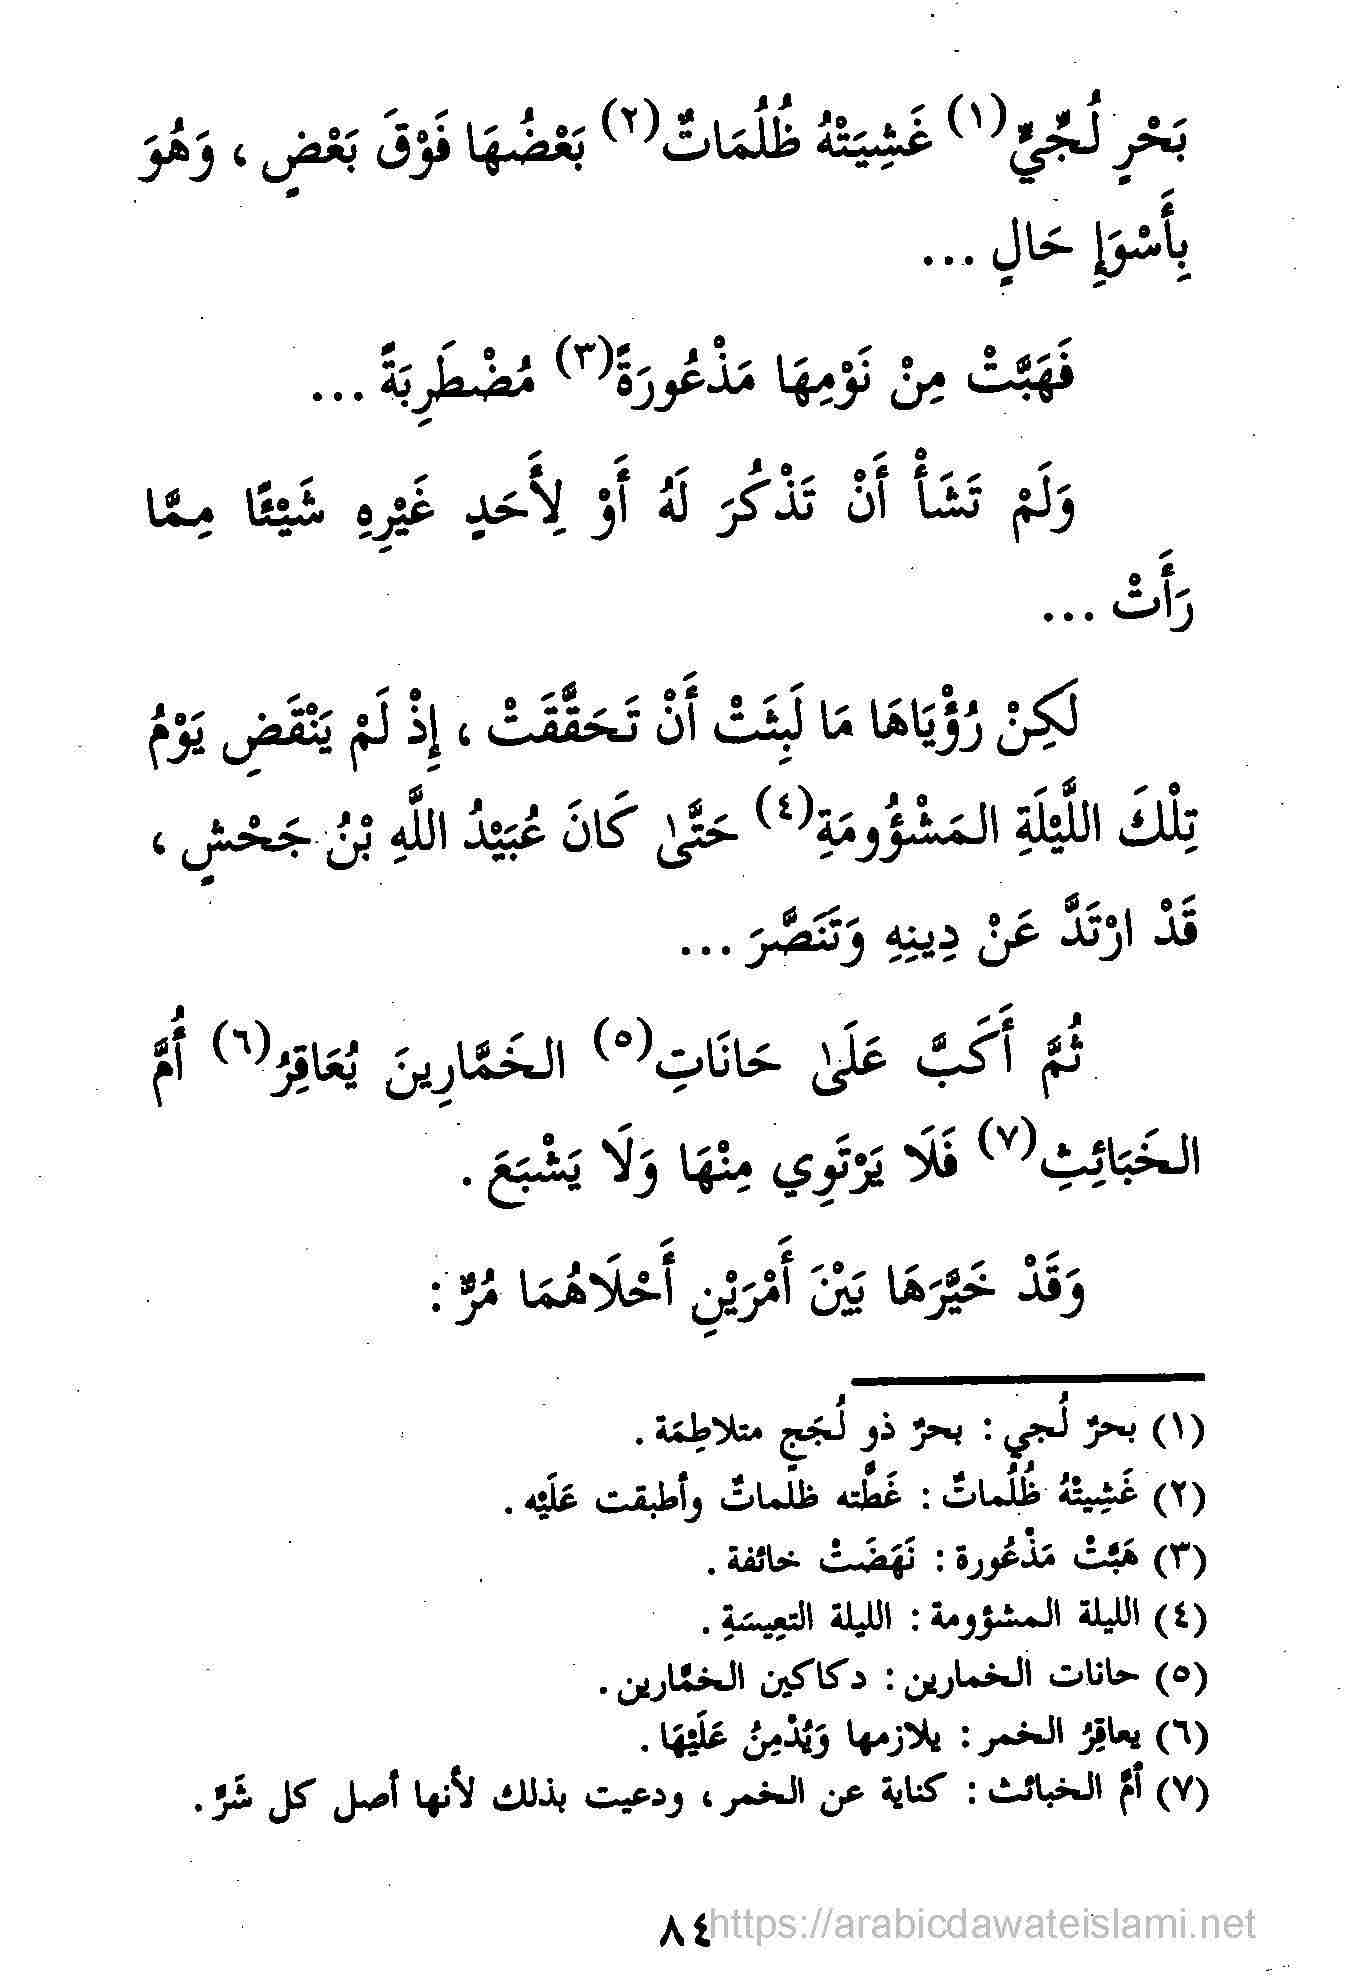 بَحْرٍ لُجِّيٍّ(١) غَشِيَتْهُ ظُلُمَاتٌ(٢) بَعْضُهَا فَوْقَ بَعْضٍ ، وَهُوَ
بِأَسْوَإِ حَالٍ ...
فَهَبَّتْ مِنْ نَوْمِهَا مَذْعُورَةً(٣) مُضْطَرِبَةً ...
وَلَمْ تَشَأْ أَنْ تَذْكُرَ لَهُ أَوْ لِأَحَدٍ غَيْرِهِ شَيْئًا مِمَّا
رَأَتْ ...
لَكِنْ رُؤْيَاهَا مَا لَبِثَتْ أَنْ تَحَقَّقَتْ ، إِذْ لَمْ يَنْقَضِ يَوْمُ
تِلْكَ اللَّيْلَةِ المَشْؤُومَةِ(٤) حَتَّىٰ كَانَ عُبَيْدُ اللَّهِ بْنُ جَحْشٍ ،
قَدْ ارْتَدَّ عَنْ دِينِهِ وَتَنَصَّرَ ...
ثُمَّ أَكَبَّ عَلَىٰ حَانَاتِ(٥) الخَمَّارِينَ يُعَاقِرُ(٦) أُمَّ
الخَبَائِثِ(٧) فَلَا يَرْتَوِي مِنْهَا وَلَا يَشْبَعَ .
وَقَدْ خَيَّرَهَا بَيْنَ أَمْرَيْنِ أَحْلَاهُمَا مُرٌّ :
(١) بحرٌ لُجي : بحرٌ ذو لُجَجٍ متلاطِمَة .
(٢) غَشِيتْهُ ظُلُماتٌ : غَطَّته ظلماتٌ وأطبقت عَلَيْه .
(٣) هَبَّتْ مَذْعُورة : نَهَضَتْ خائفة .
(٤) الليلة المشؤومة : الليلة التعِيسَةِ .
(٥) حانات الخمارين : دكاكين الخمَّارين .
(٦) يعاقِرُ الخمر : يلازمها وَيُدْمِنُ عَلَيْهَا .
(٧) أمُّ الخبائث : كناية عن الخمر ، ودعيت بذلك لأنها أصل كل شَرٍّ .
٨٤ https://arabicdawateislami.net